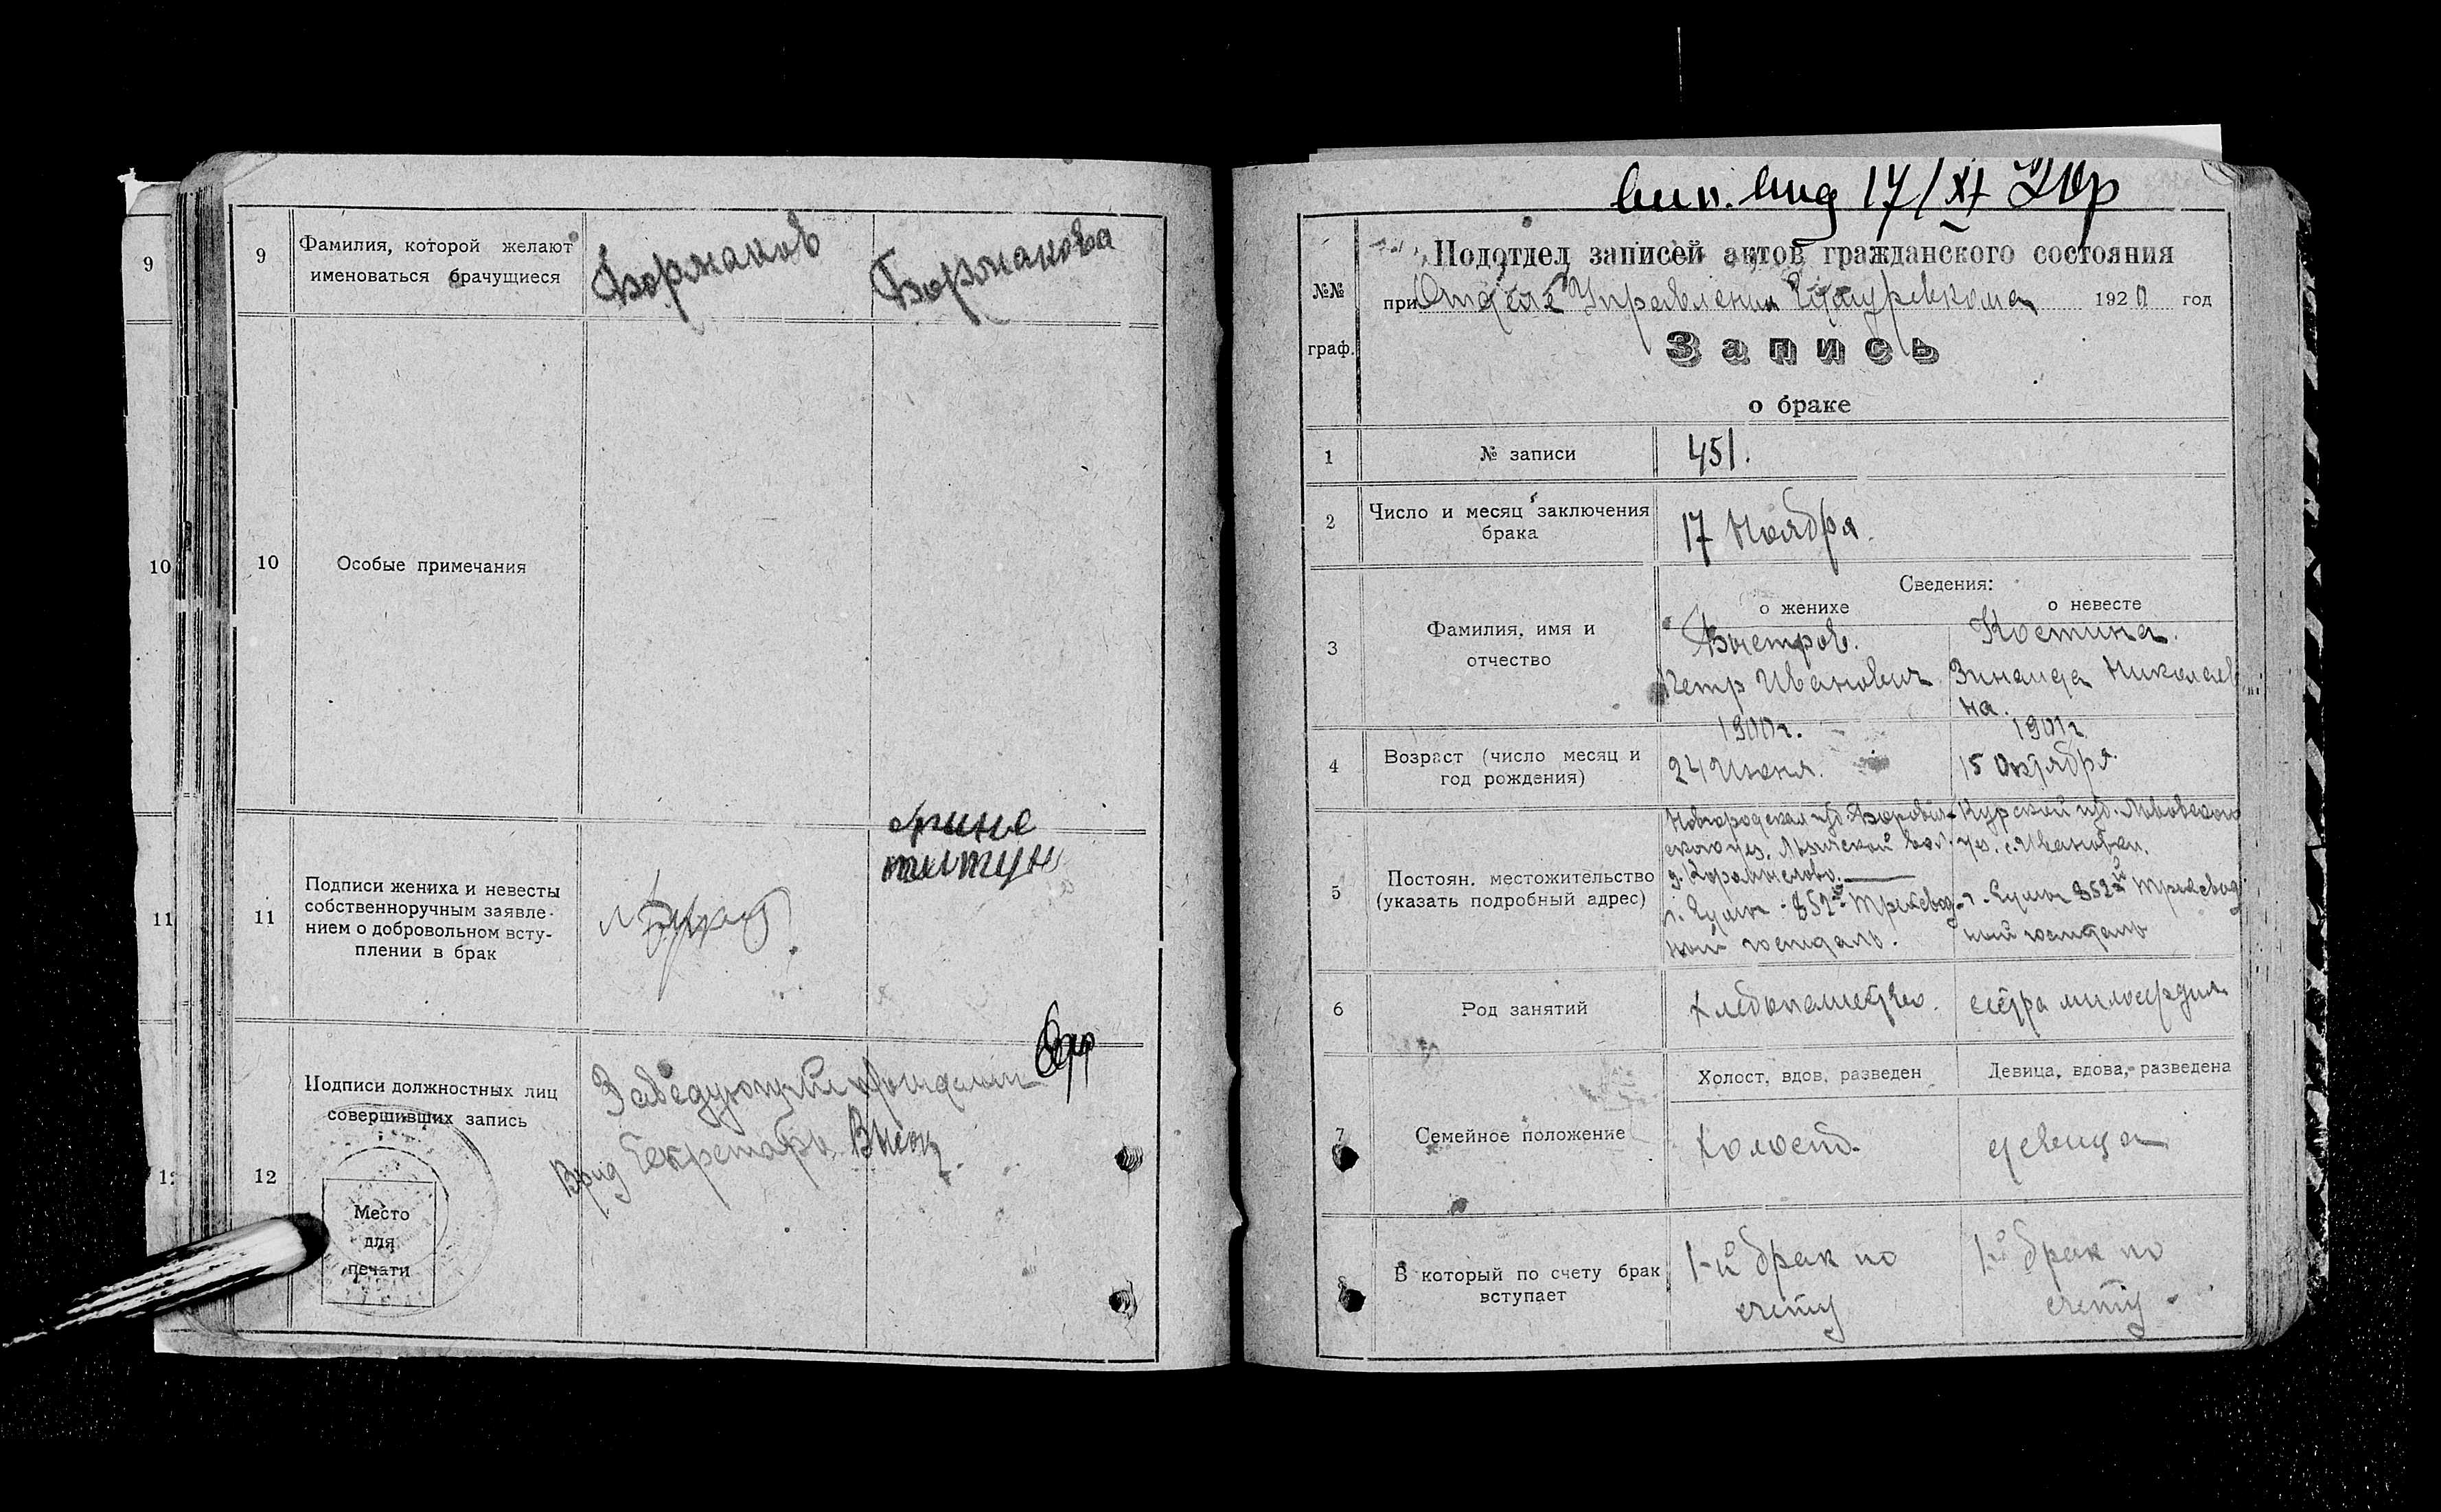 9
10
11
9
Фамилия, которой желают
именоваться брачущиеся
Боржаков
Боржакова
10
Особые примечания
11
Подписи жениха и невесты
собственноручным заявле-
нием о добровольном всту-
плении в брак
12
Подписи должностных лиц
совершивших запись
Заведующий
Врид Секретарь
Место
для
печати
17/XI
№№
граф.
Подотдел записей актов гражданского состояния
при Отделе Управления 1920 год
Запись
о браке
1
№ записи
451.
2
Число и месяц заключения
брака
17 Ноября.
Сведения:
о женихе
о невесте
3
Фамилия, имя и
отчество
Быстров.
Петр Иванович
Костина.
Зинаида Николаев
на.
4
Возраст (число месяц и
год рождения)
1900 г.
24 Июня.
1901 г
15 Октября.
5
Постоян. местожительство
(указать подробный адрес)
Новгородская губ. Борович-
ского уез. вол.
д.
852й
ной госпиталь.
Курской губ. Льговского
уез. с. Ивановки.
852й
ный госпиталь
6
Род занятий
Хлебопашество.
сестра милосердия
7
Семейное положение
Холост, вдов, разведен
Девица, вдова, разведена
Холост.
девица
8
В который по счету брак
вступает
1-й брак по
счету
1й брак по
счету.